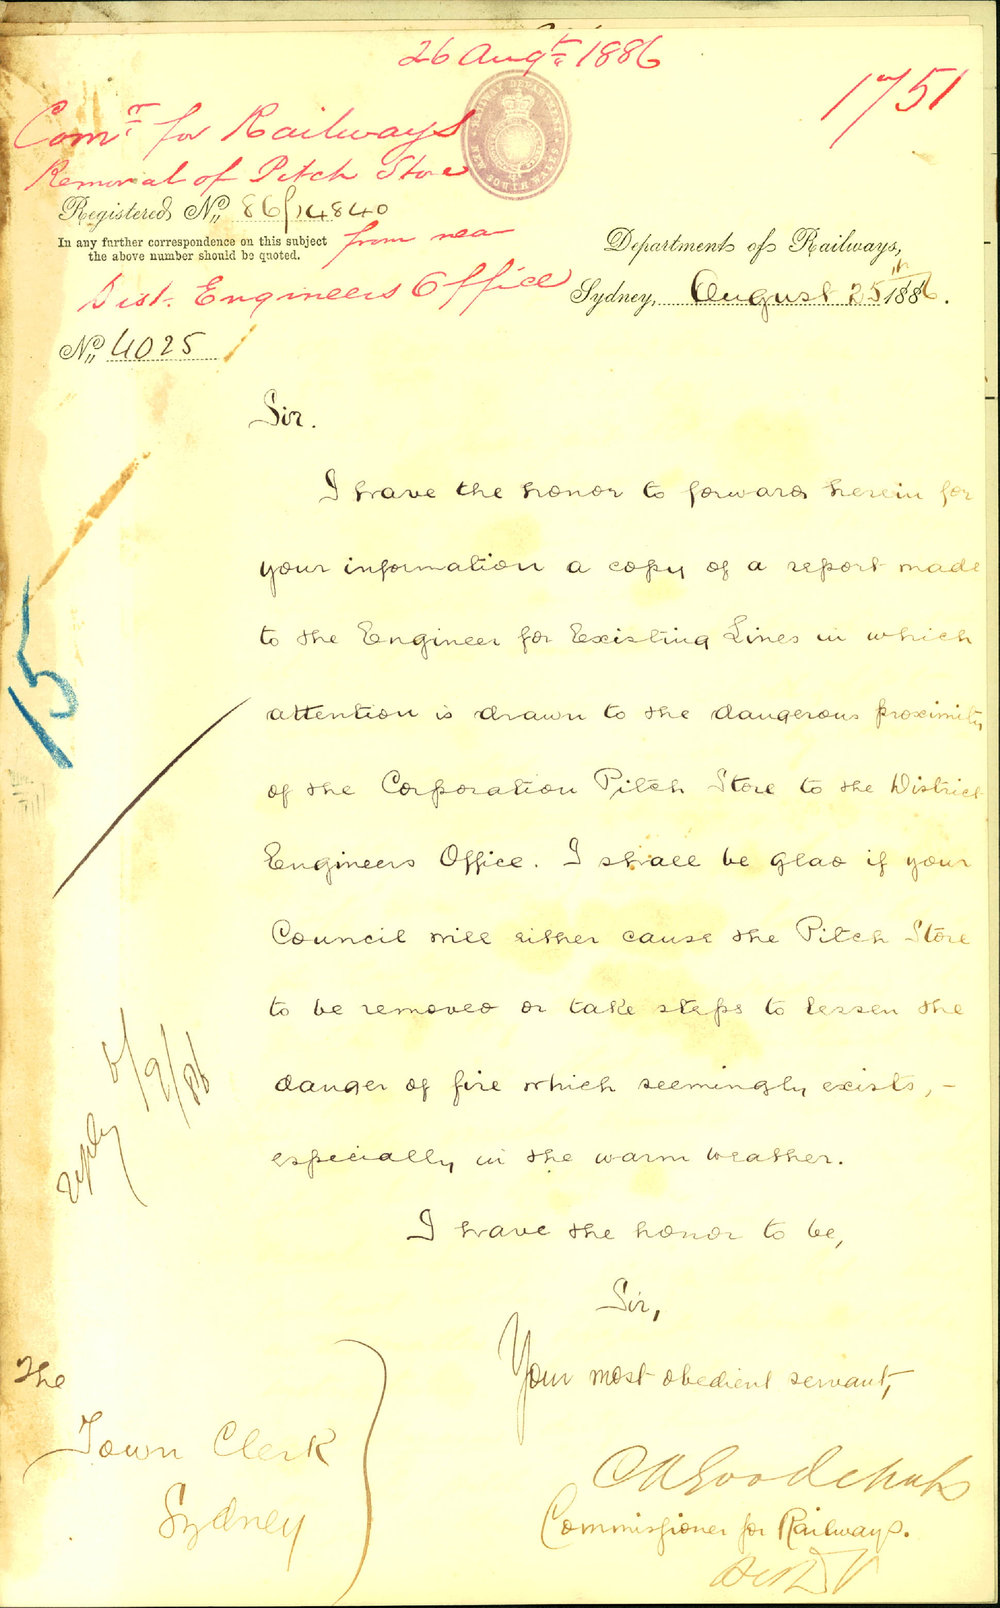 26 Augt 1886
1751
Comr for Railways
Removal of Pitch Store
RAILWAY DEPARTMENT NEW SOUTH WALES
Registered No. 86/14840
In any further correspondence on this subject
the above number should be quoted.
from near
Dist. Engineers Office
Department of Railways,
Sydney, August 25th 1886.
No. 4025
Sir.
I have the honor to forward herein for
your information a copy of a report made
to the Engineer for Existing Lines in which
attention is drawn to the dangerous proximity
of the Corporation Pitch Store to the District
Engineers Office. I shall be glad if your
Council will either cause the Pitch Store
to be removed or take steps to lessen the
danger of fire which seemingly exists, -
especially in the warm weather.
15
reply 6/9/86
I have the honor to be,
Sir,
Your most obedient servant,
Commissioner for Railways.
The
Town Clerk
Sydney